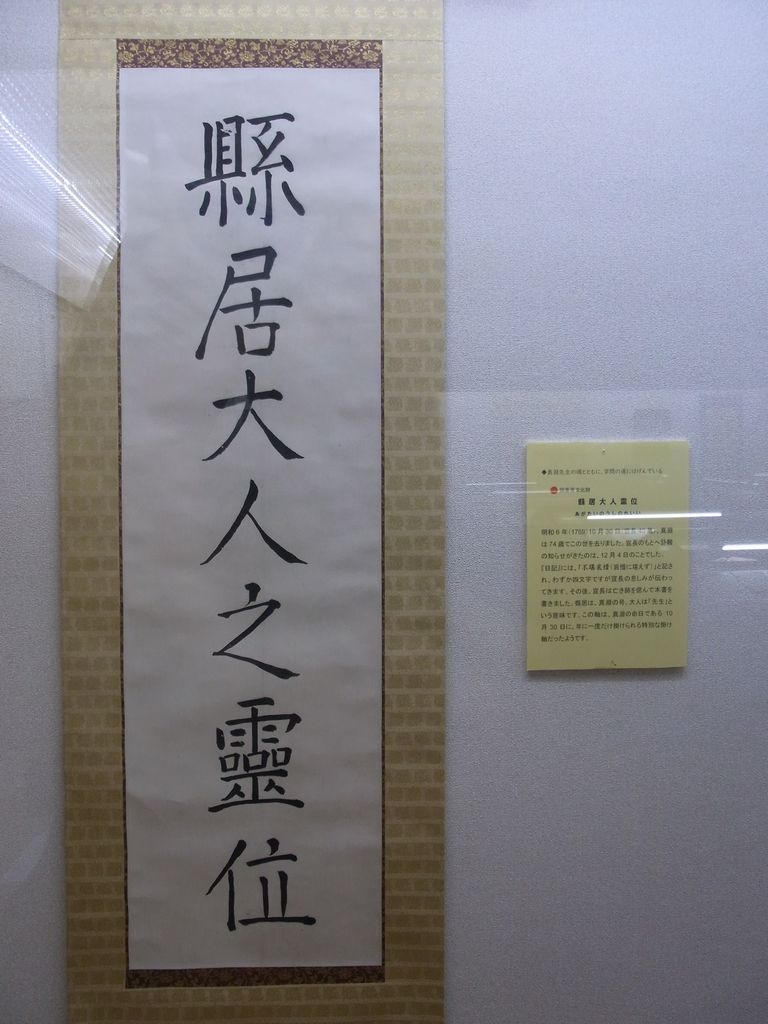 縣居大人之靈位
◆真淵先生の魂とともに、学問の道にはげんでいる
縣居大人霊位
あがたいのうしのれいい
明和6年(1769)10月30日(宣長40歳)、真淵
は74歳でこの世を去りました。宣長のもとへ訃報
の知らせがきたのは、12月4日のことでした。
『日記』には、「不堪哀惜(哀惜に堪えず)」と記さ
れ、わずか四文字ですが宣長の悲しみが伝わっ
てきます。その後、宣長は亡き師を偲んで本書を
書きました。縣居は、真淵の号、大人は「先生」と
いう意味です。この軸は、真淵の命日である10
月30日に、年に一度だけ掛けられる特別な掛け
軸だったようです。